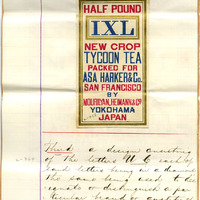 HALF POUND
IXL
NEW CROP
TYCOON TEA
PACKED FOR
ASA HARKER & Co.
SAN FRANCISCO
BY
MOURILYAN, HEIMANN & Co.
YOKOHAMA
JAPAN
Third a design consisting
of The letters
each of
said letters being in a diamond
the same being used to des
ignate or distinguish a par
ticular brand or quality of